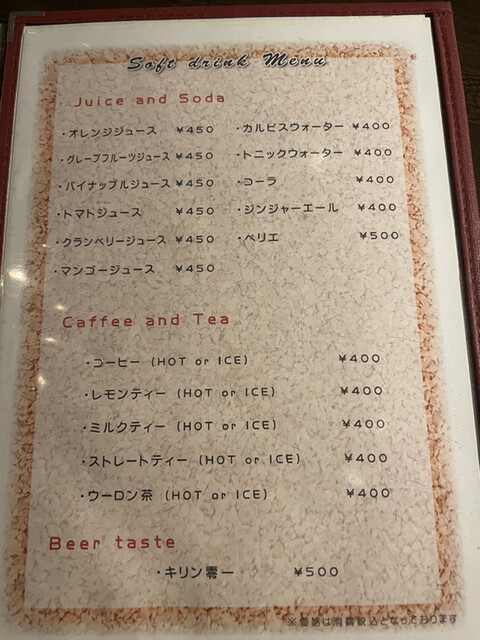 Soft drink Menu
Juice and Soda
・オレンジジュース ¥450
・グレープフルーツジュース ¥450
・パイナップルジュース ¥450
・トマトジュース ¥450
・クランベリージュース ¥450
・マンゴージュース ¥450
・カルピスウォーター ¥400
・トニックウォーター ¥400
・コーラ ¥400
・ジンジャーエール ¥400
・ペリエ ¥500
Caffee and Tea
・コーヒー (HOT or ICE) ¥400
・レモンティー (HOT or ICE) ¥400
・ミルクティー (HOT or ICE) ¥400
・ストレートティー (HOT or ICE) ¥400
・ウーロン茶 (HOT or ICE) ¥400
Beer taste
・キリン零一 ¥500
※価格は消費税込となっております